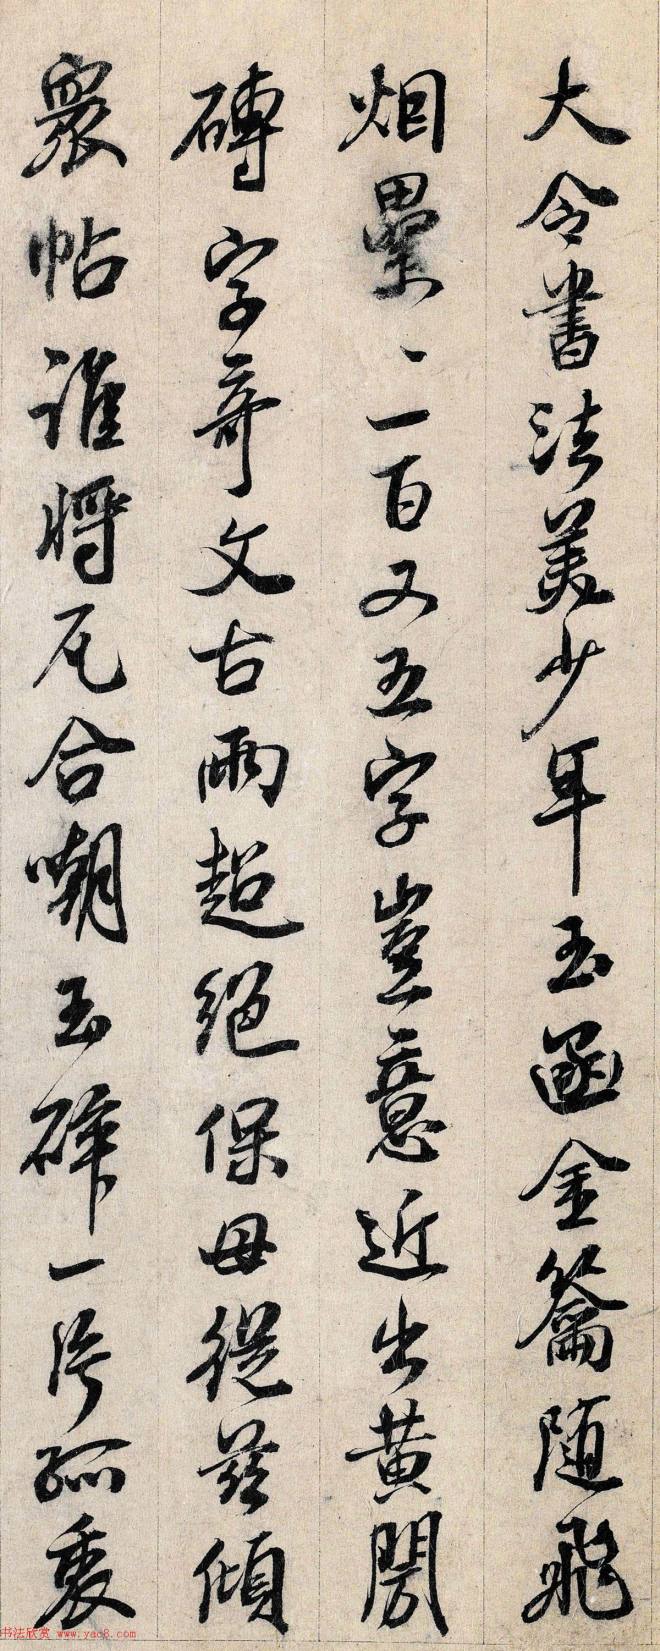 大令書法美少年玉函金籥随飛
烟壘〻一百又五字豈意近出黄閍
磚字奇文古雨超絕保母從茲傾
衆帖誰將瓦合嘲玉碎一片孤裏
书法欣赏 www.yac8.com